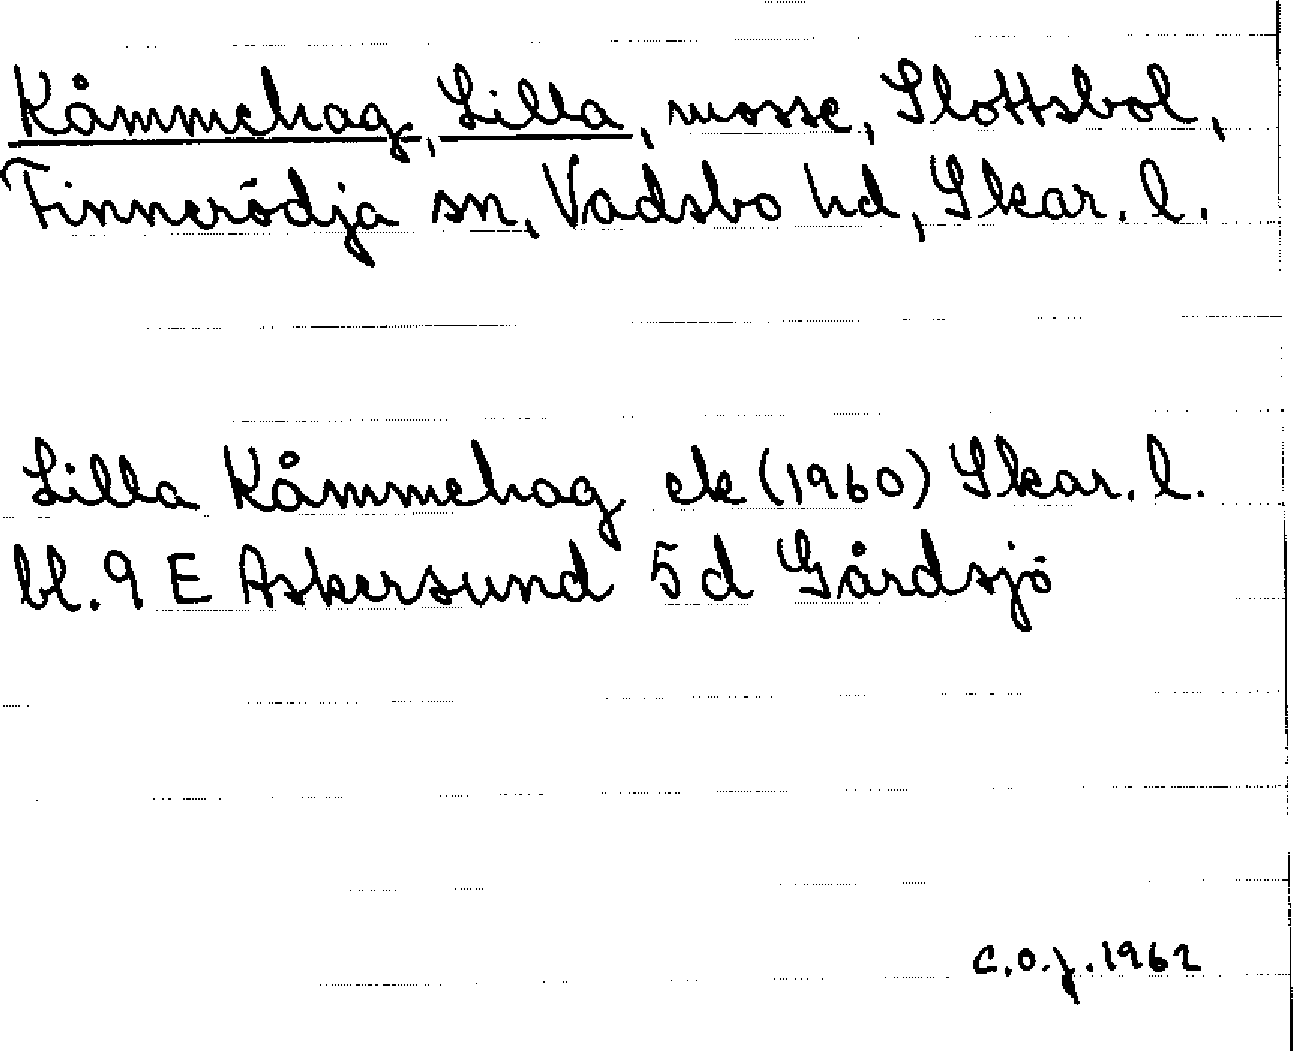 Kåmmehag, Lilla, mosse, Slottsbol,
Finnerödja sn, Vadsbo hd, Skar. l.
Lilla Kåmmehag ek (1960) Skar. l.
bl. 9 E Askersund 5 d Gårdsjö
C.O.J. 1962